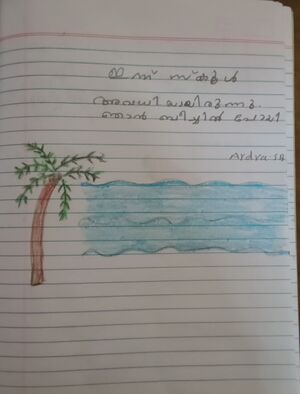 ഇന്ന് സ്കൂൾ
അവധിയായിരുന്നു.
ഞാൻ ബീച്ചിൽ പോയി
Ardra.S.B